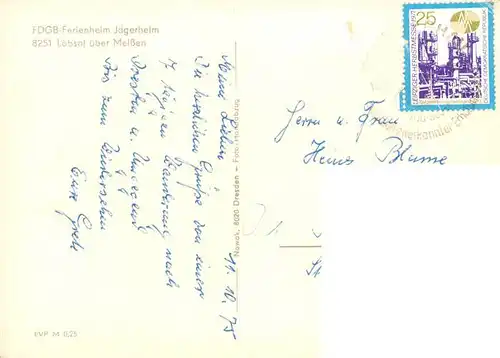 FDGB-Ferienheim Jägerheim
8251 Löbsal über Meißen
11. 10. 75
Meine Lieben
Die herzlichen Grüße von einer
7 tägigen Wanderung nach
Dresden u. Umgebung
Bis zum Wiedersehen
Eure Grete
EVP M 0,25
Nowak, 8020 Dresden – Foto:
LEIPZIGER HERBSTMESSE 1971
25
DEUTSCHE DEMOKRATISCHE REPUBLIK
Herrn u. Frau
Heinz Blume